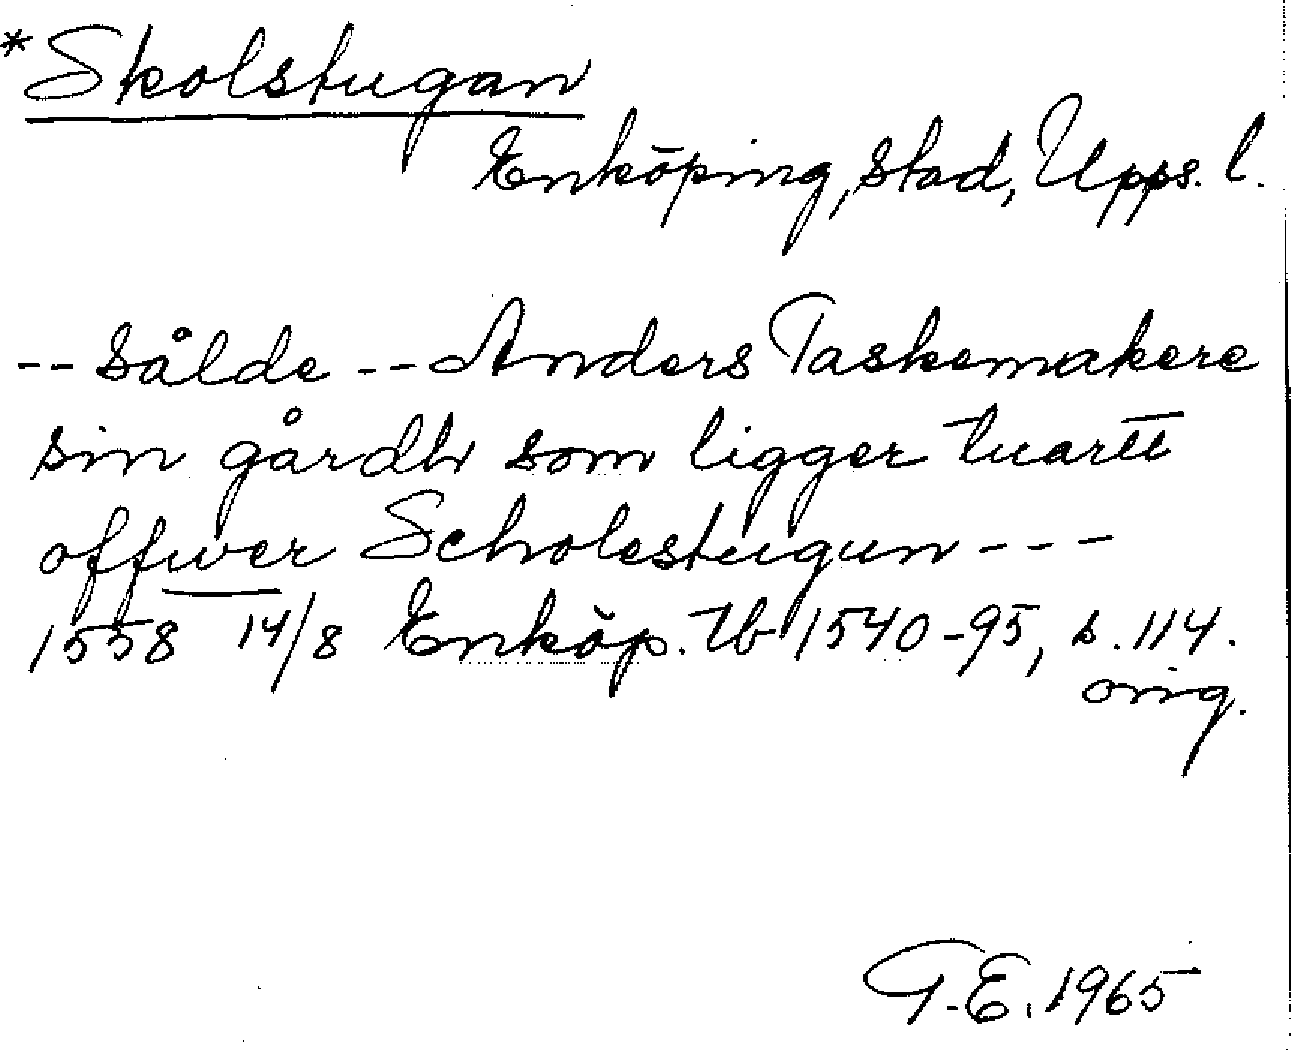 *Skolstugan
Enköping, stad, Upps. l.
-- sålde -- Anders Taskemakere
sin gårdh som ligger tuartt
offwer Scholestugun ---
1558 14/8 Enköp. tb 1540-95, s. 114.
orig.
T.E. 1965